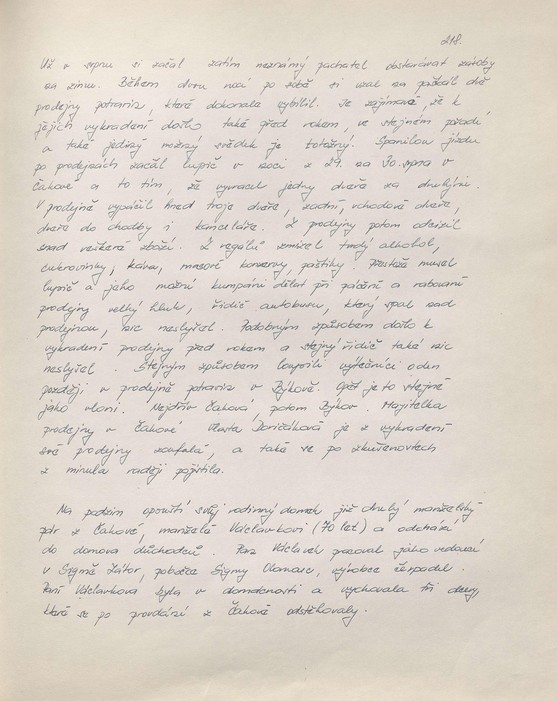 218.
Už v srpnu si začal zatím neznámý pachatel obstarávat zásoby
na zimu. Během dvou nocí po sobě si vzal na paškál dvě
prodejny potravin, které dokonale vybílil. Je zajímavé, že k
jejich vykradení došlo také před rokem, ve stejném pořadí
a také jediný možný svědek je totožný. Spanilou jízdu
po prodejnách začal lupič v noci z 29. na 30. srpna v
Čakově a to tím, že vyvrátil jedny dveře za druhými.
V prodejně vypáčil hned troje dveře, zadní, vchodové dveře,
dveře do chodby i kanceláře. Z prodejny potom odcizil
snad veškeré zboží. Z regálů zmizel tvrdý alkohol,
cukrovinky, káva, masové konzervy, paštiky. Přestože musel
lupič a jeho možní kumpáni dělat při páčení a rabování
prodejny velký hluk, řidič autobusu, který spal nad
prodejnou, nic neslyšel. Podobným způsobem došlo k
vykradení prodejny před rokem a stejný řidič také nic
neslyšel. Stejným způsobem loupili výtečníci o den
později v prodejně potravin v Býkově. Opět je to stejné
jako vloni. Nejdřív Čaková, potom Býkov. Majitelka
prodejny v Čakové Vlasta je z vykradení
své prodejny zoufalá, a také se po zkušenostech
z minula raději pojistila.
Na podzim opouští svůj rodinný domek již druhý manželský
pár z Čakové, manželé Václavkovi (70 let) a odchází
do domova důchodců. Pan Václavek pracoval jako vedoucí
v Sigmě Zátor, pobočce Sigmy Olomouc, výrobce čerpadel.
Paní Václavkova byla v domácnosti a vychovala tři dcery,
které se po provdání z Čakové odstěhovaly.